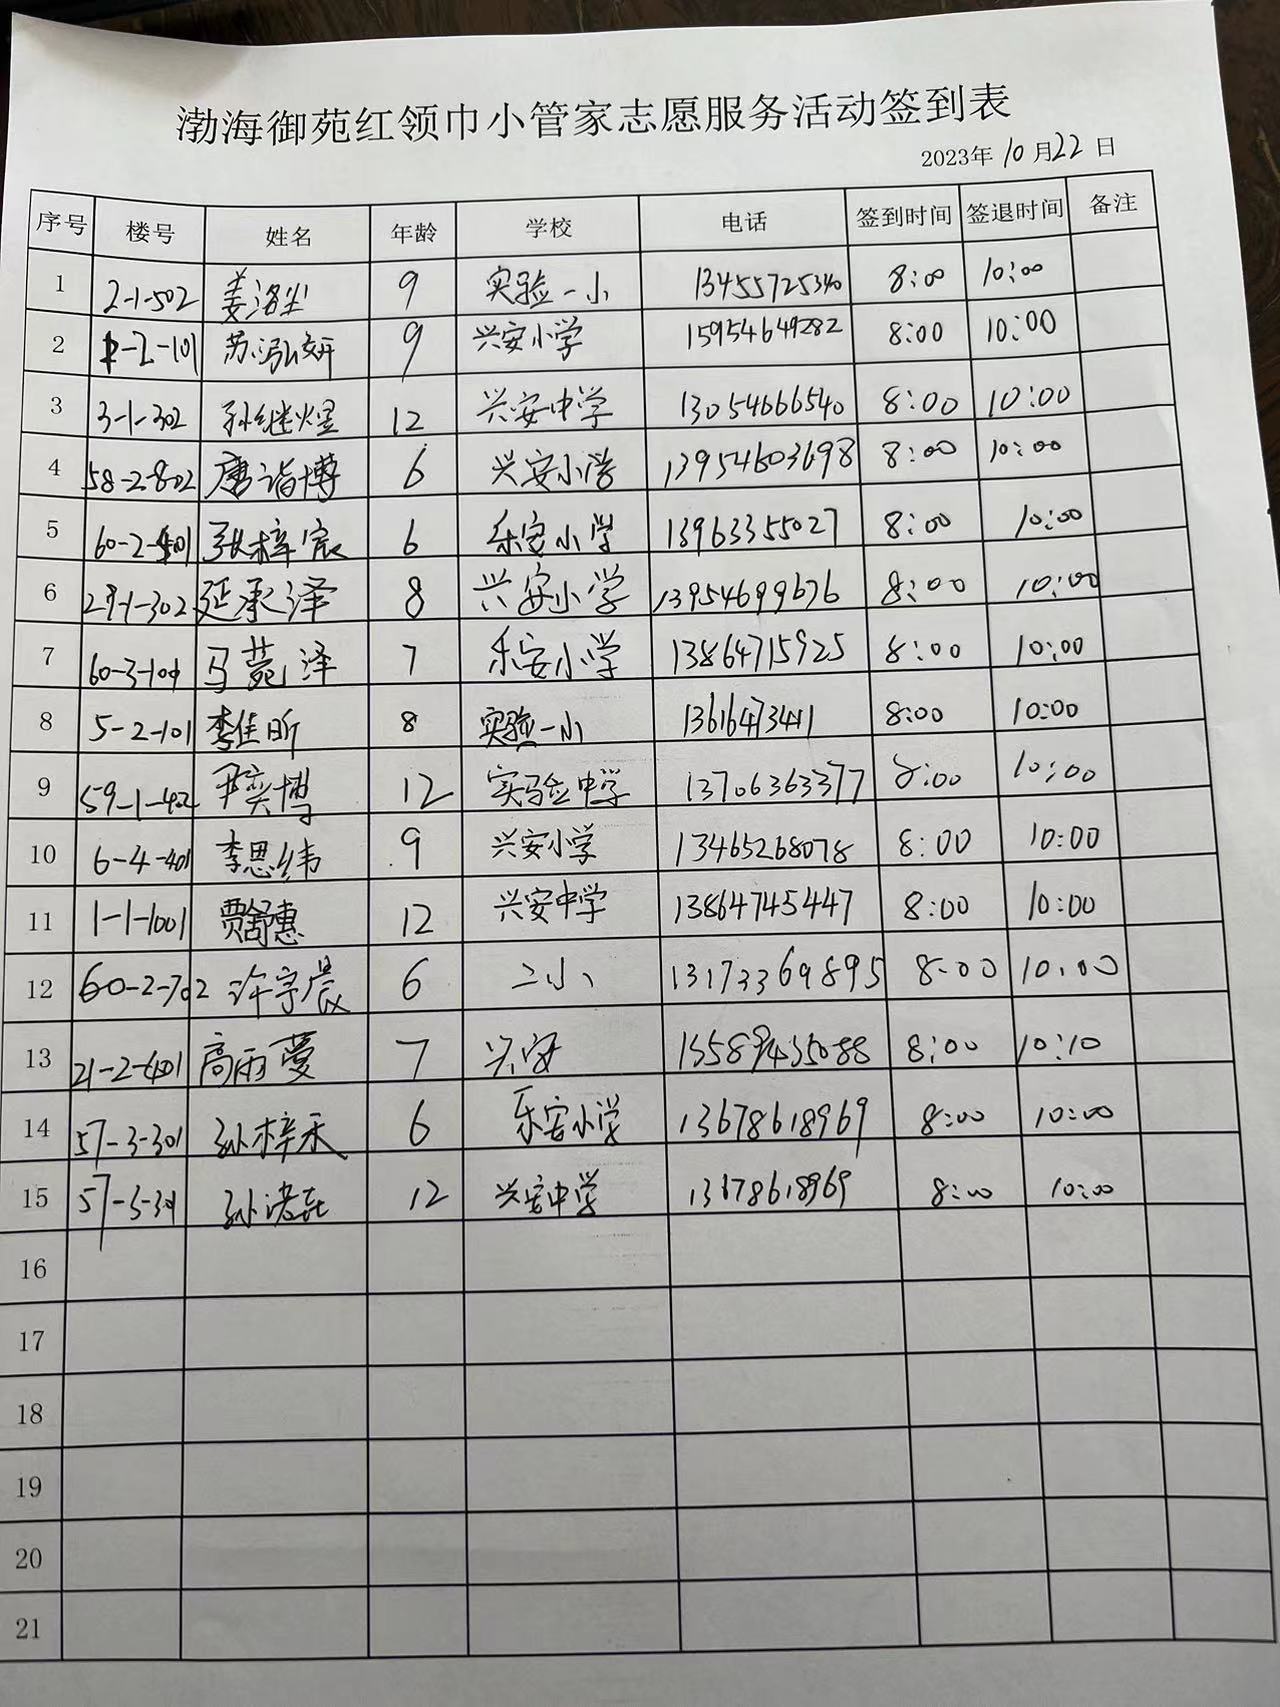 渤海御苑红领巾小管家志愿服务活动签到表
2023年10月22日
序号 楼号 姓名 年龄 学校 电话 签到时间 签退时间 备注
1 2-1-502 姜洛尘 9 实验一小 13455725340 8:00 10:00
2 1-2-101 苏泓妍 9 兴安小学 15954649282 8:00 10:00
3 3-1-302 孙继煜 12 兴安中学 13054666540 8:00 10:00
4 58-2-802 唐诣博 6 兴安小学 13954603698 8:00 10:00
5 60-2-401 张梓宸 6 乐安小学 13963355027 8:00 10:00
6 29-1-302 延承泽 8 兴安小学 13954699676 8:00 10:00
7 60-3-101 马菀泽 7 乐安小学 13864715925 8:00 10:00
8 5-2-101 李佳昕 8 实验一小 13616473411 8:00 10:00
9 59-1-402 尹奕博 12 实验中学 13706363377 8:00 10:00
10 6-4-401 李思纬 9 兴安小学 13465268078 8:00 10:00
11 1-1-1001 贾舒惠 12 兴安中学 13864745447 8:00 10:00
12 60-2-702 许宇晨 6 二小 13173369895 8:00 10:00
13 21-2-401 高雨蔓 7 兴安 8:00 10:10
14 57-3-301 孙梓禾 6 乐安小学 13678618969 8:00 10:00
15 57-3-301 12 兴安中学 13678618969 8:00 10:00
16
17
18
19
20
21